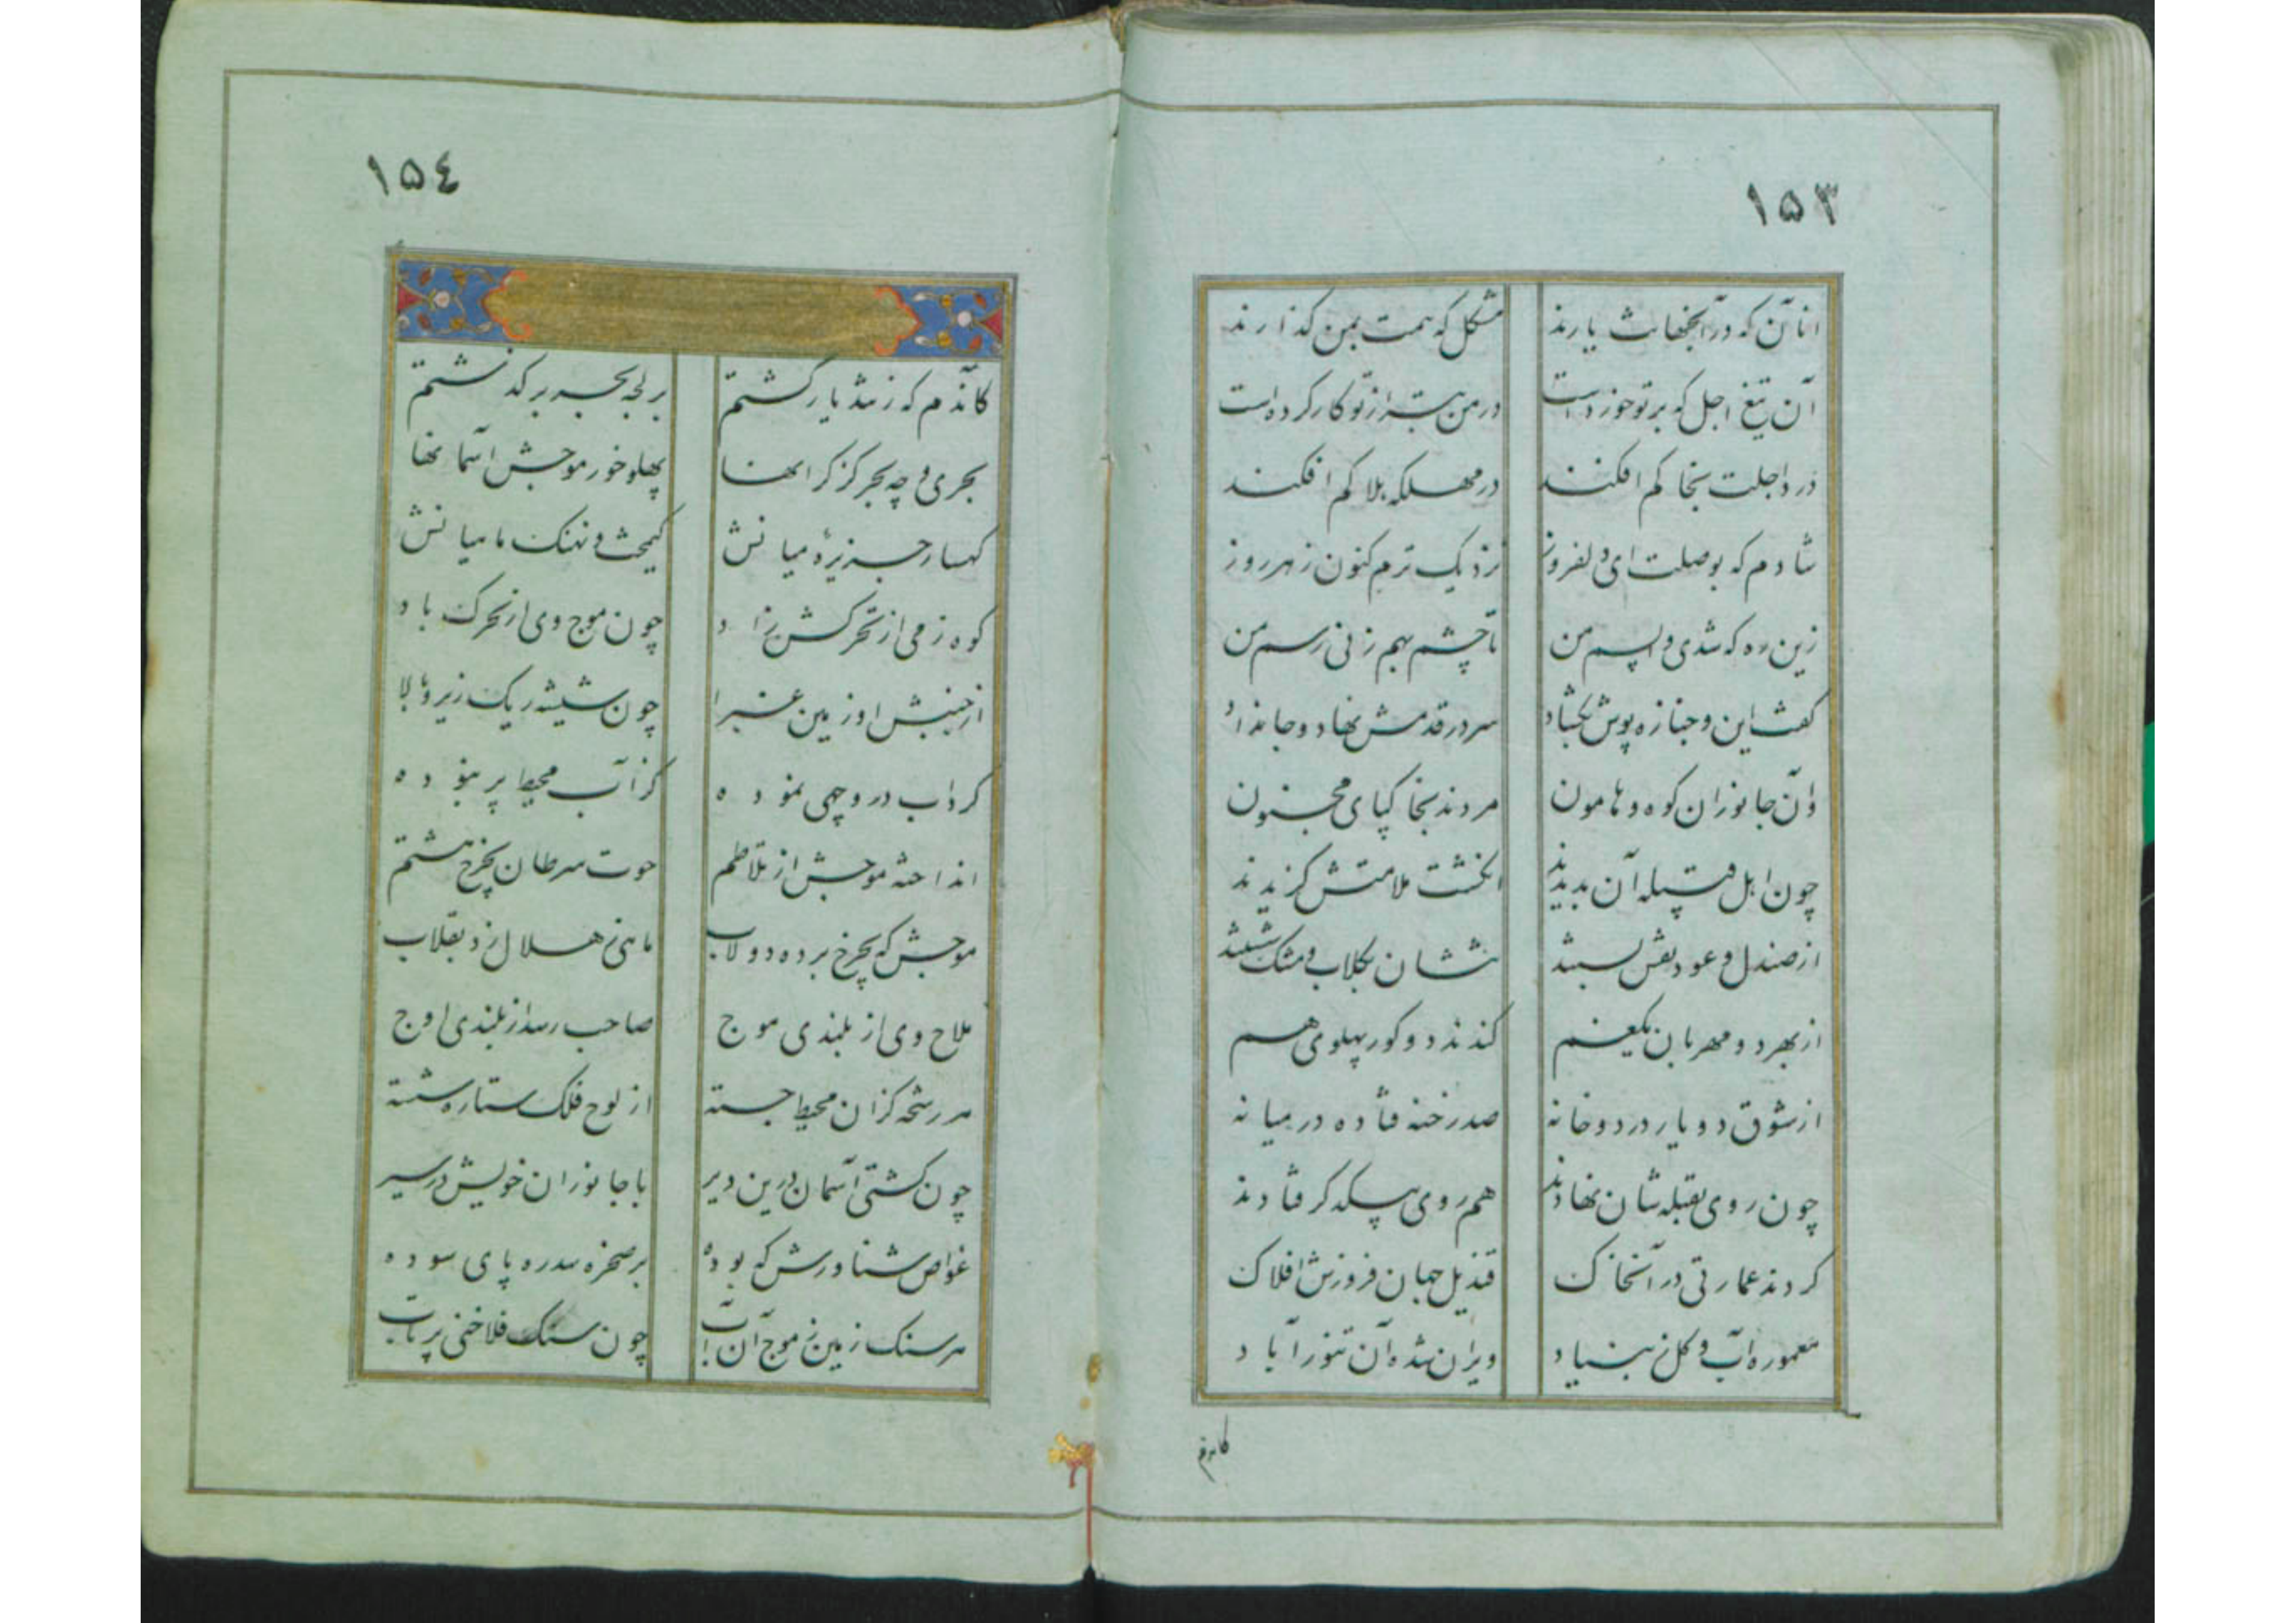 ۱۵۳
انان که در آنجهانت یارند
مشکل که همت بمن گذارند
آن تیغ اجل که بر تو خورد است
در من بتر از تو کار کرده است
در د اجلت بخا کم افکند
در مهلکه بلا کم افکند
شادم که بوصلت ای دلفروز
نزدیک ترم کنون ز هر روز
زین ره که شدی و اپسم من
تا چشم بهم زنی رسم من
گفت این و جنازه پوش بگشاد
سر در قدمش نهاد و جانداد
وآن جانوران کوه و هامون
مردند بخاکپای مجنون
چون اهل قبیله آن بدیدند
انگشت ملامتش گزیدند
از صندل و عود نعش بستند
شان بگلاب و مشک شستند
از بهر دو مهربان بیغم
کندند دو کور پهلوی هم
از شوق دو یار در دو خانه
صد رخنه فتاده در میانه
چون روی بقبله شان نهادند
هم روی بیکدگر فتادند
کردند عمارتی در آنخاک
قندیل جهان فروزش افلاک
معموره آب و گل ز بنیاد
ویران شده آن تنور آباد
کاندم
۱۵٤
کاندم که زشد یار گشتم
بر لجه بحر بر گذشتم
بحری و چه بحر کز کرانها
پهلو خور موجش اسمانها
کهسار جزیرهٔ میانش
کیمخت و نهنک ماهیانش
کوه زمی از تحرکش زاد
چون موج وی از تحرک باد
از جنبش او زمین غبرا
چون شیشه ریک زیر و بالا
کرداب در و چهی نموده
کز آب محیط پر نبوده
انداخته موجش از تلاطم
حوت سرطان بچرخ هشتم
موجش که بچرخ برده دولاب
ماهی ز هلال زد بقلاب
ملاح وی از بلندی موج
صاحب رسد از بلندی اوج
هر رشحه کز ان محیط جسته
از لوح فلک ستاره شسته
چون کشتی آسمان درین دیر
با جانوران خویش در سیر
غواص شناورش که بوده
بر صخره سدره پای سوده
هر سنک زمین ز موج آن آب
چون سنک فلاخنی پرتاب